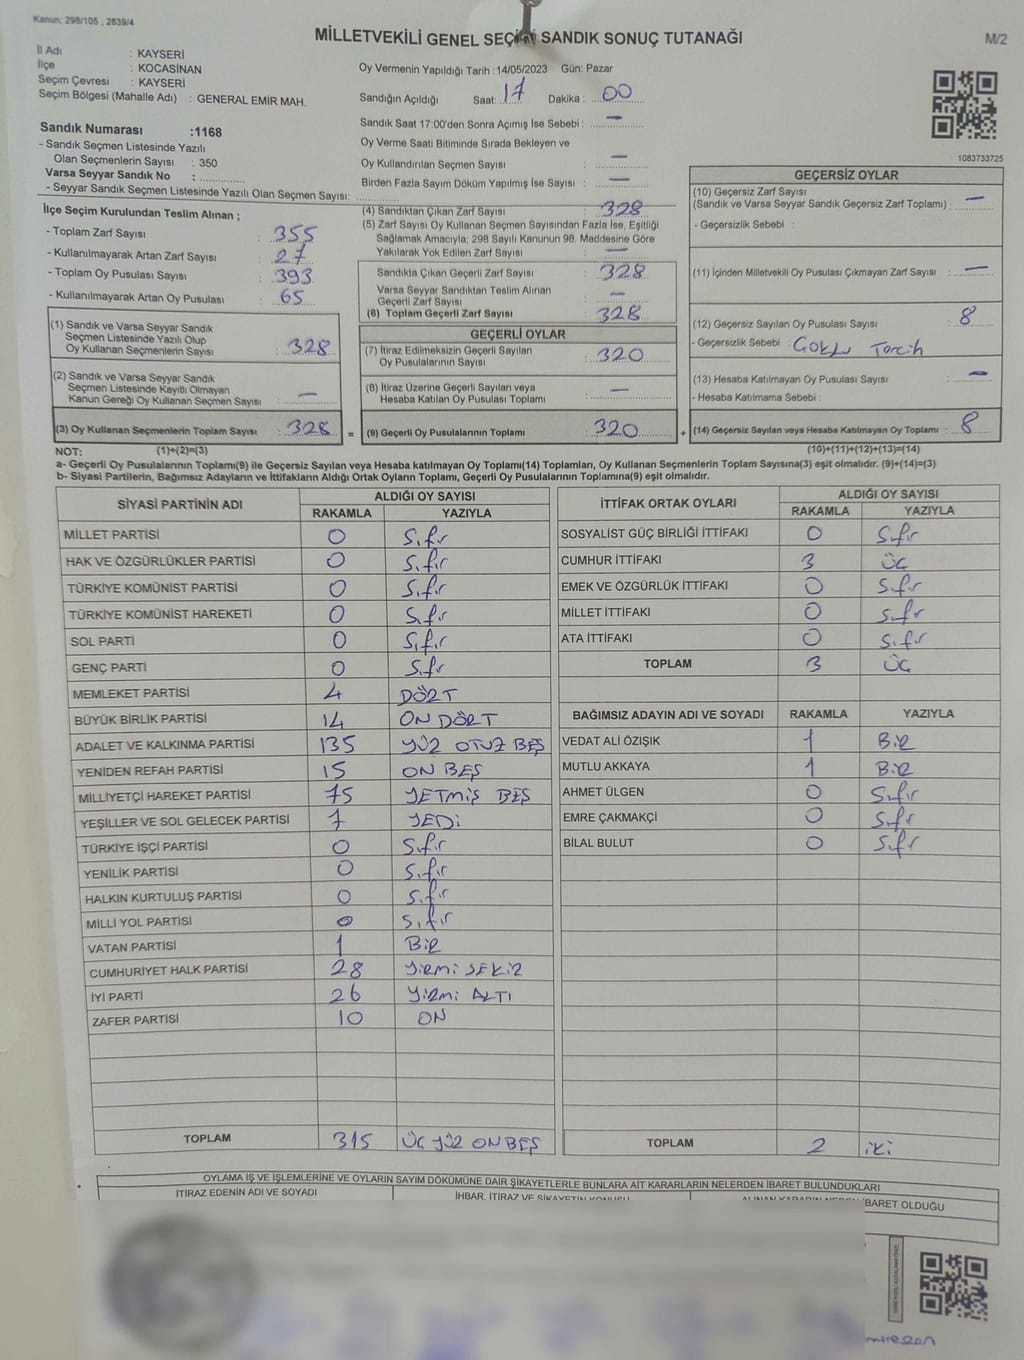 Kanun: 298/105 , 2839/4
MİLLETVEKİLİ GENEL SEÇİMİ SANDIK SONUÇ TUTANAĞI
M/2
İl Adı : KAYSERİ
İlçe : KOCASİNAN
Seçim Çevresi : KAYSERİ
Seçim Bölgesi (Mahalle Adı) : GENERAL EMİR MAH.
Sandık Numarası :1168
- Sandık Seçmen Listesinde Yazılı
Olan Seçmenlerin Sayısı : 350
Varsa Seyyar Sandık No :
- Seyyar Sandık Seçmen Listesinde Yazılı Olan Seçmen Sayısı:
İlçe Seçim Kurulundan Teslim Alınan ;
- Toplam Zarf Sayısı : 355
- Kullanılmayarak Artan Zarf Sayısı : 27
- Toplam Oy Pusulası Sayısı : 393
- Kullanılmayarak Artan Oy Pusulası : 65
(1) Sandık ve Varsa Seyyar Sandık
Seçmen Listesinde Yazılı Olup
Oy Kullanan Seçmenlerin Sayısı : 328
(2) Sandık ve Varsa Seyyar Sandık
Seçmen Listesinde Kayıtlı Olmayan
Kanun Gereği Oy Kullanan Seçmen Sayısı : —
(3) Oy Kullanan Seçmenlerin Toplam Sayısı : 328 =
Oy Vermenin Yapıldığı Tarih :14/05/2023 Gün: Pazar
Sandığın Açıldığı Saat: 17 Dakika : 00
Sandık Saat 17:00'den Sonra Açımış İse Sebebi : —
Oy Verme Saati Bitiminde Sırada Bekleyen ve
Oy Kullandırılan Seçmen Sayısı : —
Birden Fazla Sayım Döküm Yapılmış İse Sayısı : —
(4) Sandıktan Çıkan Zarf Sayısı : 328
(5) Zarf Sayısı Oy Kullanan Seçmen Sayısından Fazla İse, Eşitliği
Sağlamak Amacıyla; 298 Sayılı Kanunun 98. Maddesine Göre
Yakılarak Yok Edilen Zarf Sayısı : —
Sandıkta Çıkan Geçerli Zarf Sayısı : 328
Varsa Seyyar Sandıktan Teslim Alınan
Geçerli Zarf Sayısı : —
(6) Toplam Geçerli Zarf Sayısı : 328
GEÇERLİ OYLAR
(7) İtiraz Edilmeksizin Geçerli Sayılan
Oy Pusulalarının Sayısı : 320
(8) İtiraz Üzerine Geçerli Sayılan veya
Hesaba Katılan Oy Pusulası Toplamı : —
(9) Geçerli Oy Pusulalarının Toplamı : 320 +
1083733725
GEÇERSİZ OYLAR
(10) Geçersiz Zarf Sayısı
(Sandık ve Varsa Seyyar Sandık Geçersiz Zarf Toplamı) : —
- Geçersizlik Sebebi :
(11) İçinden Milletvekili Oy Pusulası Çıkmayan Zarf Sayısı : —
(12) Geçersiz Sayılan Oy Pusulası Sayısı : 8
- Geçersizlik Sebebi : Çoklu Tercih
(13) Hesaba Katılmayan Oy Pusulası Sayısı : —
- Hesaba Katılmama Sebebi :
(14) Geçersiz Sayılan veya Hesaba Katılmayan Oy Toplamı : 8
NOT: (1)+(2)=(3) (10)+(11)+(12)+(13)=(14)
a- Geçerli Oy Pusulalarının Toplamı(9) ile Geçersiz Sayılan veya Hesaba katılmayan Oy Toplamı(14) Toplamları, Oy Kullanan Seçmenlerin Toplam Sayısına(3) eşit olmalıdır. (9)+(14)=(3)
b- Siyasi Partilerin, Bağımsız Adayların ve İttifakların Aldığı Ortak Oyların Toplamı, Geçerli Oy Pusulalarının Toplamına(9) eşit olmalıdır.
SİYASİ PARTİNİN ADI ALDIĞI OY SAYISI
RAKAMLA YAZIYLA
MİLLET PARTİSİ 0 Sıfır
HAK VE ÖZGÜRLÜKLER PARTİSİ 0 Sıfır
TÜRKİYE KOMÜNİST PARTİSİ 0 Sıfır
TÜRKİYE KOMÜNİST HAREKETİ 0 Sıfır
SOL PARTİ 0 Sıfır
GENÇ PARTİ 0 Sıfır
MEMLEKET PARTİSİ 4 DÖRT
BÜYÜK BİRLİK PARTİSİ 14 ON DÖRT
ADALET VE KALKINMA PARTİSİ 135 YÜZ OTUZ BEŞ
YENİDEN REFAH PARTİSİ 15 ON BEŞ
MİLLİYETÇİ HAREKET PARTİSİ 75 YETMİŞ BEŞ
YEŞİLLER VE SOL GELECEK PARTİSİ 7 YEDİ
TÜRKİYE İŞÇİ PARTİSİ 0 Sıfır
YENİLİK PARTİSİ 0 Sıfır
HALKIN KURTULUŞ PARTİSİ 0 Sıfır
MİLLİ YOL PARTİSİ 0 Sıfır
VATAN PARTİSİ 1 BİR
CUMHURİYET HALK PARTİSİ 28 YİRMİ SEKİZ
İYİ PARTİ 26 YİRMİ ALTI
ZAFER PARTİSİ 10 ON
TOPLAM 315 ÜÇ YÜZ ON BEŞ
İTTİFAK ORTAK OYLARI ALDIĞI OY SAYISI
RAKAMLA YAZIYLA
SOSYALİST GÜÇ BİRLİĞİ İTTİFAKI 0 Sıfır
CUMHUR İTTİFAKI 3 ÜÇ
EMEK VE ÖZGÜRLÜK İTTİFAKI 0 Sıfır
MİLLET İTTİFAKI 0 Sıfır
ATA İTTİFAKI 0 Sıfır
TOPLAM 3 ÜÇ
BAĞIMSIZ ADAYIN ADI VE SOYADI RAKAMLA YAZIYLA
VEDAT ALİ ÖZIŞIK 1 BİR
MUTLU AKKAYA 1 BİR
AHMET ÜLGEN 0 Sıfır
EMRE ÇAKMAKÇİ 0 Sıfır
BİLAL BULUT 0 Sıfır
TOPLAM 2 iki
OYLAMA İŞ VE İŞLEMLERİNE VE OYLARIN SAYIM DÖKÜMÜNE DAİR ŞİKAYETLERLE BUNLARA AİT KARARLARIN NELERDEN İBARET BULUNDUKLARI
İTİRAZ EDENİN ADI VE SOYADI İHBAR, İTİRAZ VE ŞİKAYETİN KONUSU ALINAN KARARIN NEDEN İBARET OLDUĞU